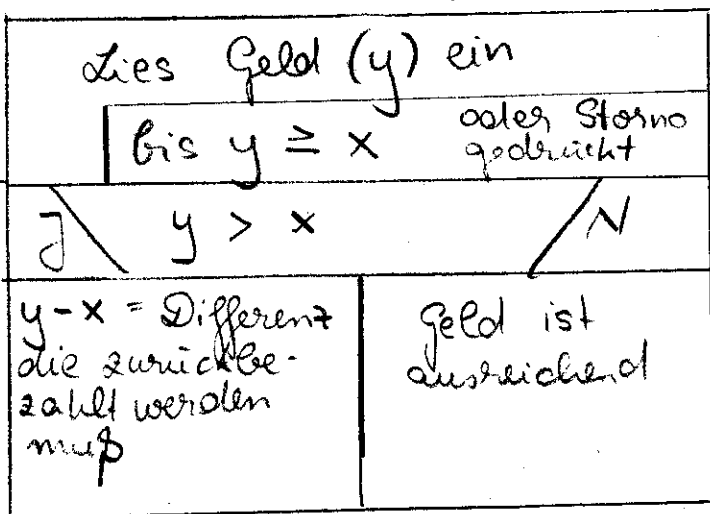 Lies Geld (y) ein
bis y ≥ x oder Storno
gedrückt
J y > x N
y-x = Differenz
die zurückbe-
zahlt werden
muß
Geld ist
ausreichend